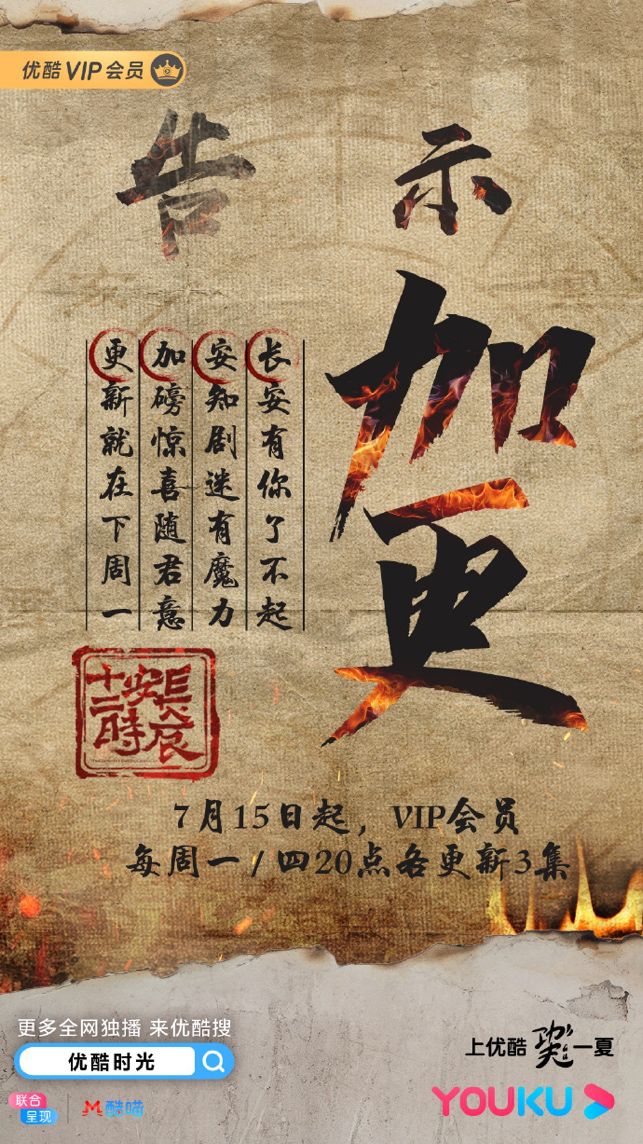 优酷VIP会员
告示
加更
长安有你了不起
安知剧迷有魔力
加磅惊喜随君意
更新就在下周一
长安十二时辰
7月15日起，VIP会员
每周一/四20点各更新3集
更多全网独播 来优酷搜
优酷时光
联合呈现
酷喵
上优酷 一夏
YOUKU